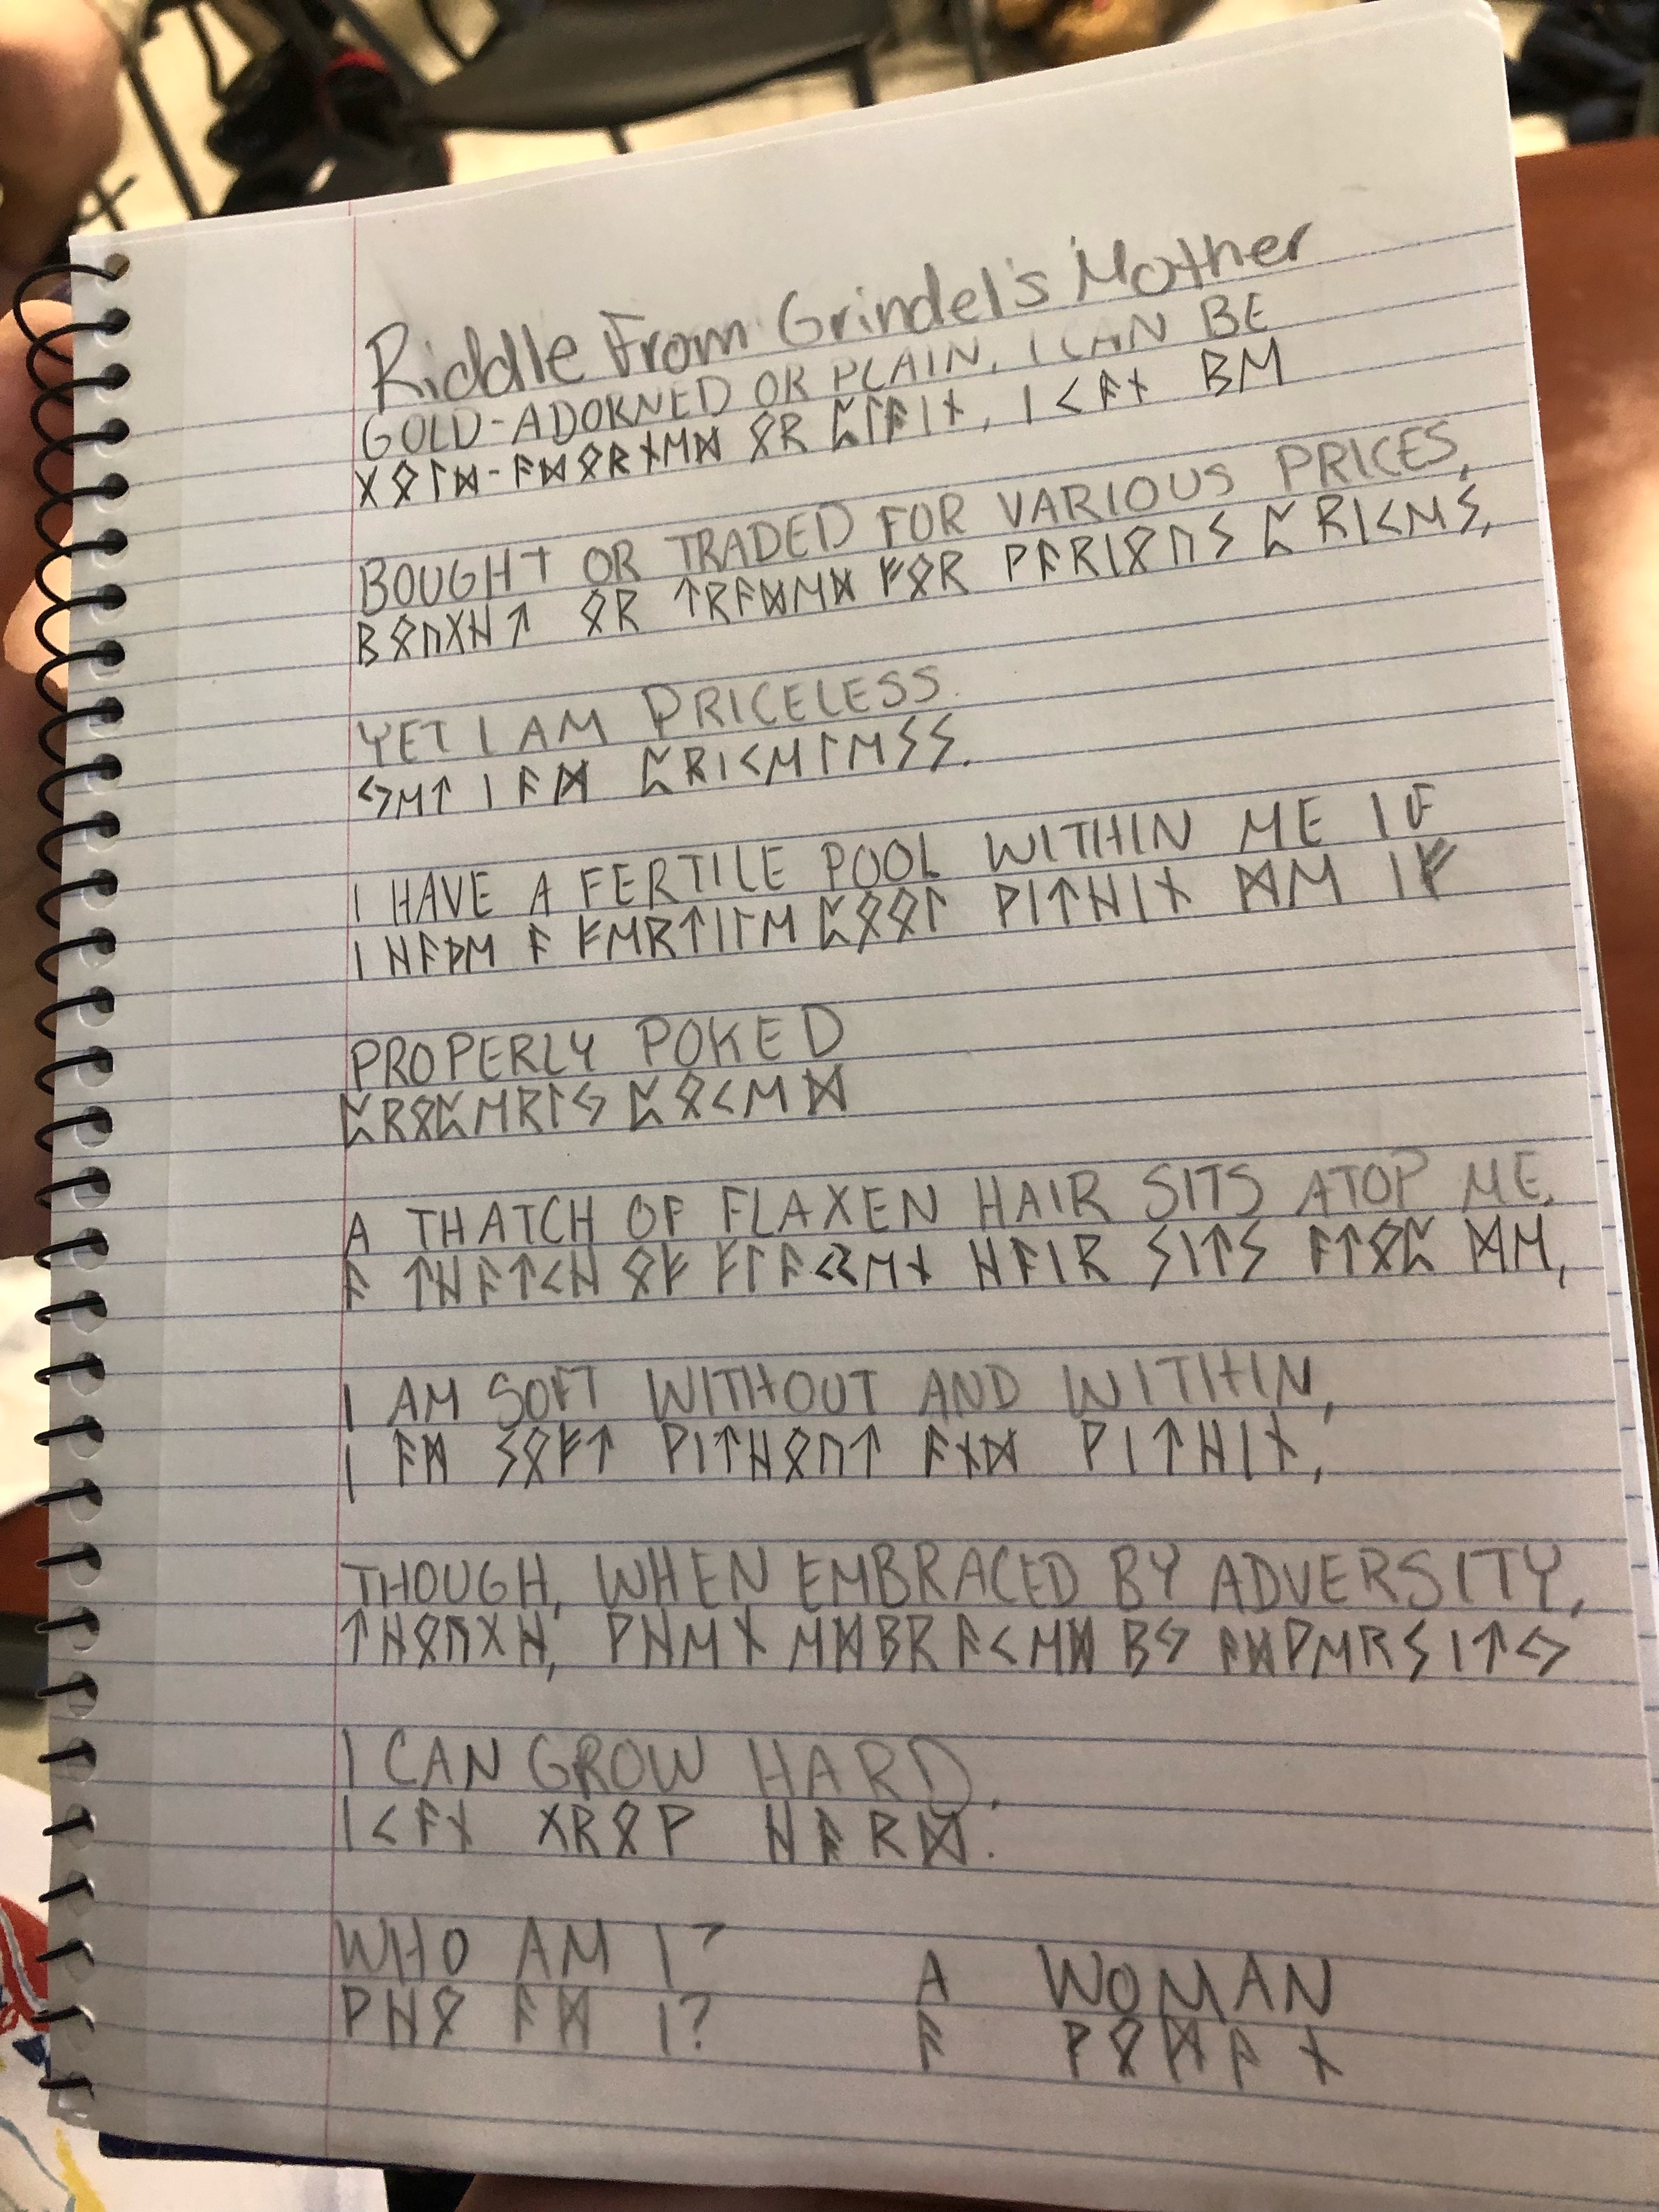 Riddle From Grindel's Mother
GOLD-ADORNED OR PLAIN, I CAN BE
ᚷᛟᛚᛞ-ᚨᛞᛟᚱᚾᛖᛞ ᛟᚱ ᛈᛚᚨᛁᚾ, ᛁ ᚲᚨᚾ ᛒᛖ
BOUGHT OR TRADED FOR VARIOUS PRICES,
ᛒᛟᚢᚷᚺᛏ ᛟᚱ ᛏᚱᚨᛞᛖᛞ ᚠᛟᚱ ᚹᚨᚱᛁᛟᚢᛊ ᛈᚱᛁᚲᛖᛊ,
YET I AM PRICELESS.
ᛃᛖᛏ ᛁ ᚨᛗ ᛈᚱᛁᚲᛖᛚᛖᛊᛊ.
I HAVE A FERTILE POOL WITHIN ME IF
ᛁ ᚺᚨᚹᛖ ᚨ ᚠᛖᚱᛏᛁᛚᛖ ᛈᛟᛟᛚ ᚹᛁᛏᚺᛁᚾ ᛗᛖ ᛁᚠ
PROPERLY POKED
ᛈᚱᛟᛈᛖᚱᛚᛃ ᛈᛟᚲᛖᛞ
A THATCH OF FLAXEN HAIR SITS ATOP ME,
ᚨ ᛏᚺᚨᛏᚲᚺ ᛟᚠ ᚠᛚᚨᚲᛊᛖᚾ ᚺᚨᛁᚱ ᛊᛁᛏᛊ ᚨᛏᛟᛈ ᛗᛖ,
I AM SOFT WITHOUT AND WITIHIN,
ᛁ ᚨᛗ ᛊᛟᚠᛏ ᚹᛁᛏᚺᛟᚢᛏ ᚨᚾᛞ ᚹᛁᛏᚺᛁᚾ,
THOUGH, WHEN EMBRACED BY ADVERSITY,
ᛏᚺᛟᚢᚷᚺ, ᚹᚺᛖᚾ ᛖᛗᛒᚱᚨᚲᛖᛞ ᛒᛃ ᚨᛞᚹᛖᚱᛊᛁᛏᛃ
I CAN GROW HARD.
ᛁ ᚲᚨᚾ ᚷᚱᛟᚹ ᚺᚨᚱᛞ.
WHO AM I? A WOMAN
ᚹᚺᛟ ᚨᛗ ᛁ? ᚨ ᚹᛟᛗᚨᚾ